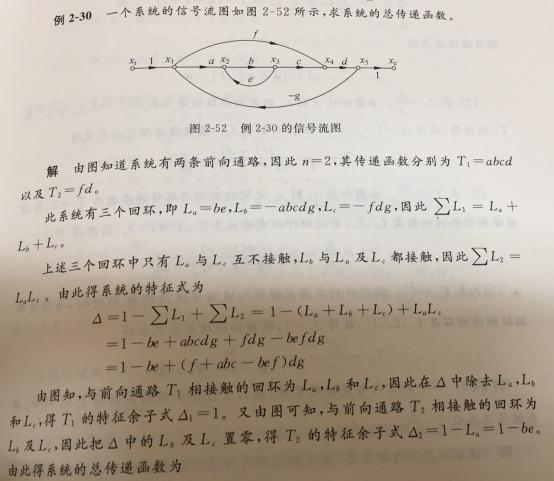 例 2-30 一个系统的信号流图如图 2-52 所示,求系统的总传递函数。
f
xr 1 x1 a x2 b x3 c x4 d x5 xc
e 1
-g
图 2-52 例 2-30 的信号流图
解 由图知道系统有两条前向通路,因此 n=2,其传递函数分别为 T₁=abcd
以及 T₂=fd。
此系统有三个回环,即 Lₐ=be,L_b=-abcdg,L_c=-fdg,因此 ∑L₁ = Lₐ +
L_b+L_c。
上述三个回环中只有 Lₐ 与 L_c 互不接触,L_b 与 Lₐ 及 L_c 都接触,因此 ∑L₂ =
LₐL_c。由此得系统的特征式为
Δ=1- ∑L₁ + ∑L₂ = 1-(Lₐ+L_b+L_c)+LₐL_c
=1-be+abcdg+fdg-befdg
=1-be+(f+abc-bef)dg
由图知,与前向通路 T₁ 相接触的回环为 Lₐ,L_b 和 L_c,因此在 Δ 中除去 Lₐ,L_b
和 L_c,得 T₁ 的特征余子式 Δ₁=1。又由图可知,与前向通路 T₂ 相接触的回环为
L_b 及 L_c,因此把 Δ 中的 L_b 及 L_c 置零,得 T₂ 的特征余子式 Δ₂=1-Lₐ=1-be。
由此得系统的总传递函数为